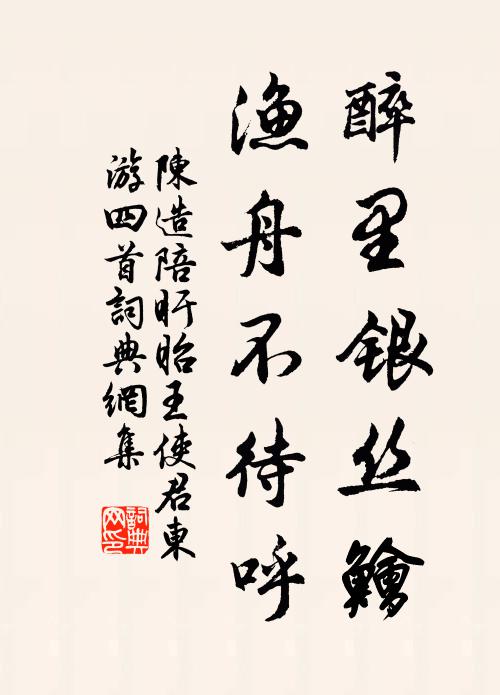 醉里銀丝鱠
渔舟不待呼
陳造陪盱眙王使君東
游四首詞典網集
詞典
网印